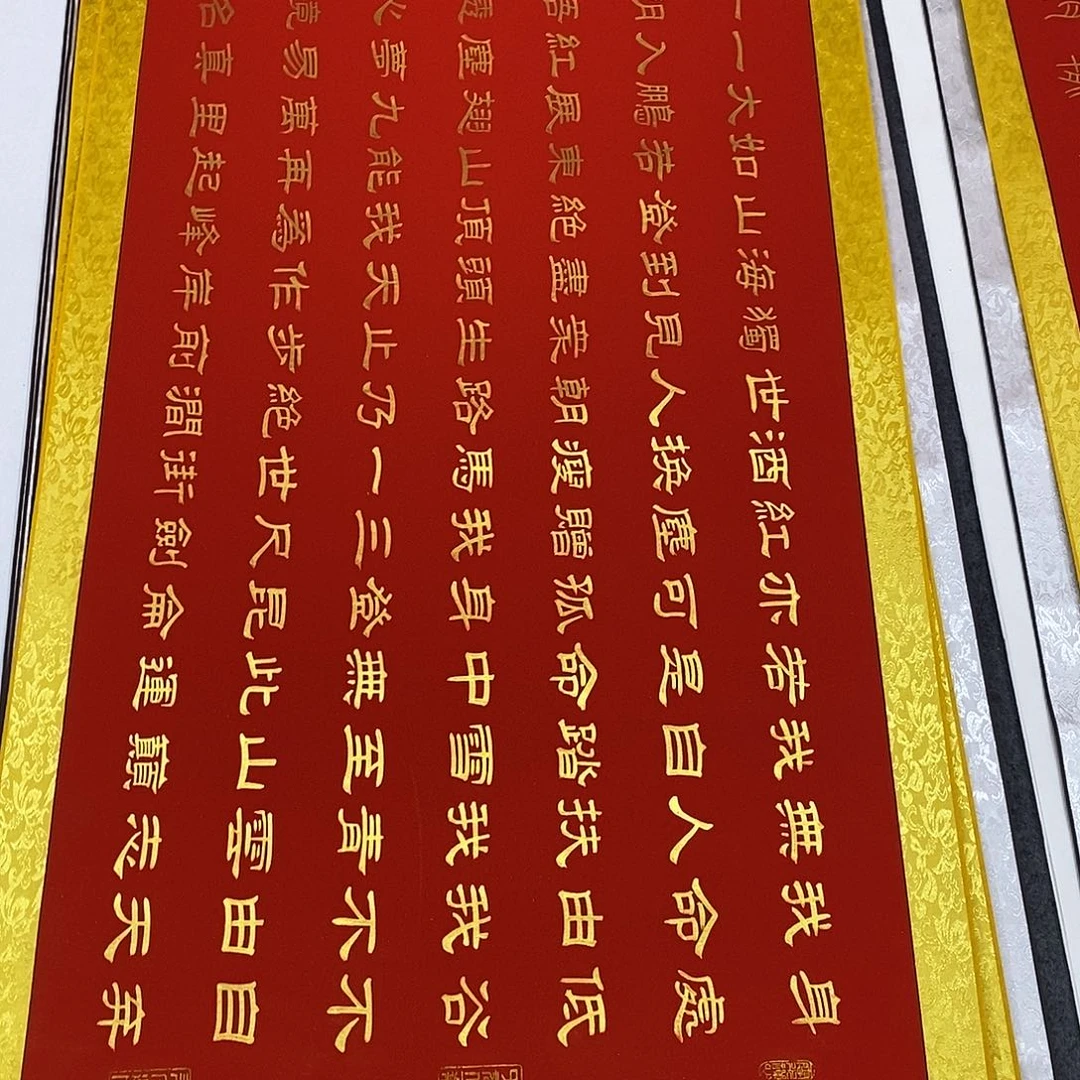 一悟境名
一入紅塵夢易真
大鵬展翅九萬里
如若東山能再起
山登絕頂我為峰
海到盡頭天作岸
獨見眾生止步前
世人朝路乃絕澗
酒換瘦馬一世街
紅塵贈我三尺劍
亦可孤身登昆侖
若是命中無此運
我自踏雪至山巔
無人扶我青雲志
我命由我不由天
身處低谷不自弃